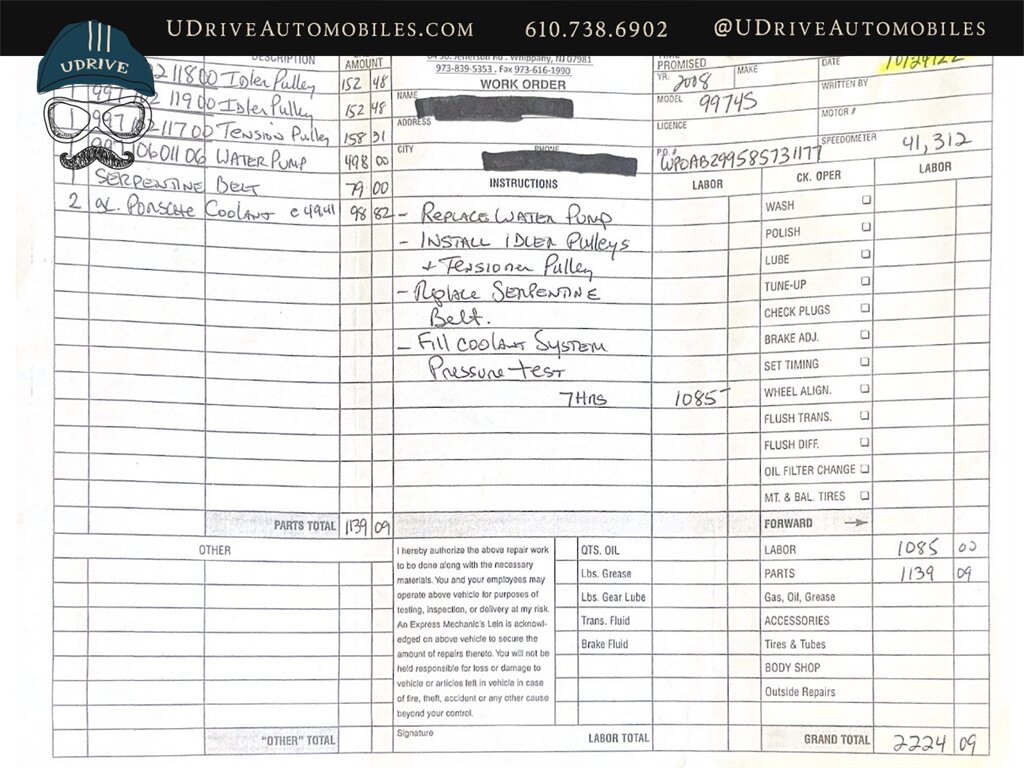 UDRIVEAUTOMOBILES.COM 610.738.6902 @UDRIVEAUTOMOBILES
UDRIVE
DESCRIPTION AMOUNT
11800 Idler Pulley 152 48
1 997 11900 Idler Pulley 152 48
1 997 11700 Tension Pulley 158 31
997 10601106 WATER PUMP 498 00
SERPENTINE BELT 79 00
2 gl. PORSCHE Coolant @ 4941 98 82
PARTS TOTAL 1139 09
OTHER
"OTHER" TOTAL
Jefferson Rd. Whippany, NJ 07981
973-839-5353 . Fax 973-616-1990
WORK ORDER
NAME
ADDRESS
CITY PHONE
INSTRUCTIONS
- REPLACE WATER PUMP
- INSTALL IDLER Pulleys
+ Tensioner Pulley
- Replace SERPENTINE
Belt.
- Fill coolant System
Pressure test
7 Hrs 1085-
I hereby authorize the above repair work
to be done along with the necessary
materials. You and your employees may
operate above vehicle for purposes of
testing, inspection, or delivery at my risk.
An Express Mechanic's Lein is acknowl-
edged on above vehicle to secure the
amount of repairs thereto. You will not be
held responsible for loss or damage to
vehicle or articles left in vehicle in case
of fire, theft, accident or any other cause
beyond your control.
Signature
QTS. OIL
Lbs. Grease
Lbs. Gear Lube
Trans. Fluid
Brake Fluid
LABOR TOTAL
PROMISED
YR. 2008 MAKE
MODEL 997 4S
LICENCE
P.O.# WP0AB299585731177
DATE
WRITTEN BY
MOTOR #
SPEEDOMETER 41,312
LABOR CK. OPER LABOR
WASH
POLISH
LUBE
TUNE-UP
CHECK PLUGS
BRAKE ADJ.
SET TIMING
WHEEL ALIGN.
FLUSH TRANS.
FLUSH DIFF.
OIL FILTER CHANGE
MT. & BAL. TIRES
FORWARD
LABOR 1085 00
PARTS 1139 09
Gas, Oil, Grease
ACCESSORIES
Tires & Tubes
BODY SHOP
Outside Repairs
GRAND TOTAL 2224 09